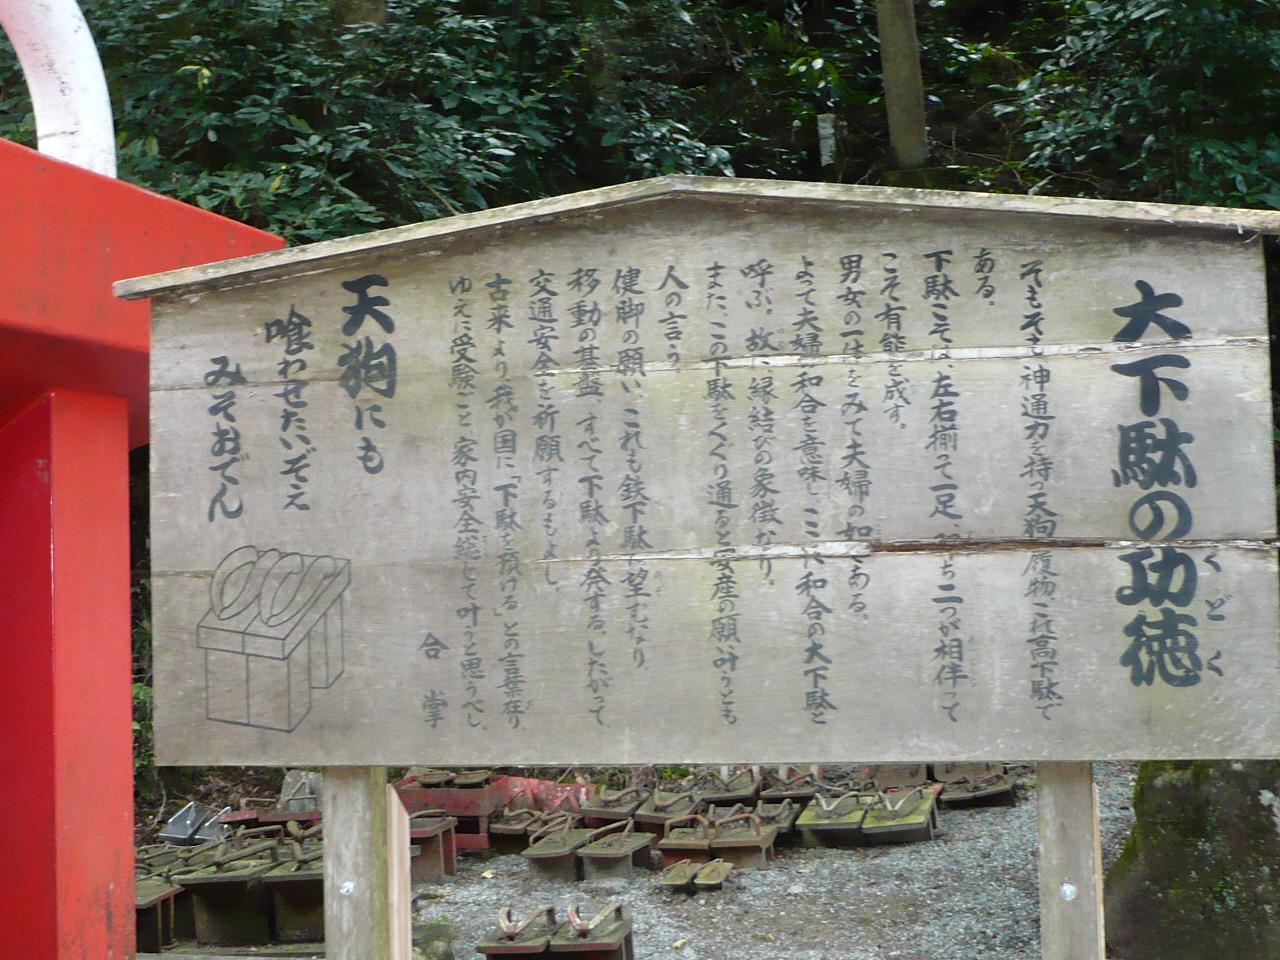 大下駄の功徳
くどく
そもそも神通力を持つ天狗履物、これ高下駄で
ある。
下駄こそは、左右揃って一足、即ち二つが相伴って
こそ有能を成す。
男女の一体をみて夫婦の如くである。
よって夫婦和合を意味し、ここに和合の大下駄と
呼ぶ。故に縁結びの象徴なり。
また、この下駄をくぐり通ると安産の願い叶うとも
人の言う。
健脚の願い、これも鉄下駄に望むなり
移動の基盤、すべて下駄より発する。したがって
交通安全を祈願するもよし。
古来より我が国に「下駄を預ける」との言葉在り
ゆえに受験ごと家内安全総じて叶うと思うべし。
合掌
天狗にも
喰わせたいぞえ
みそおでん